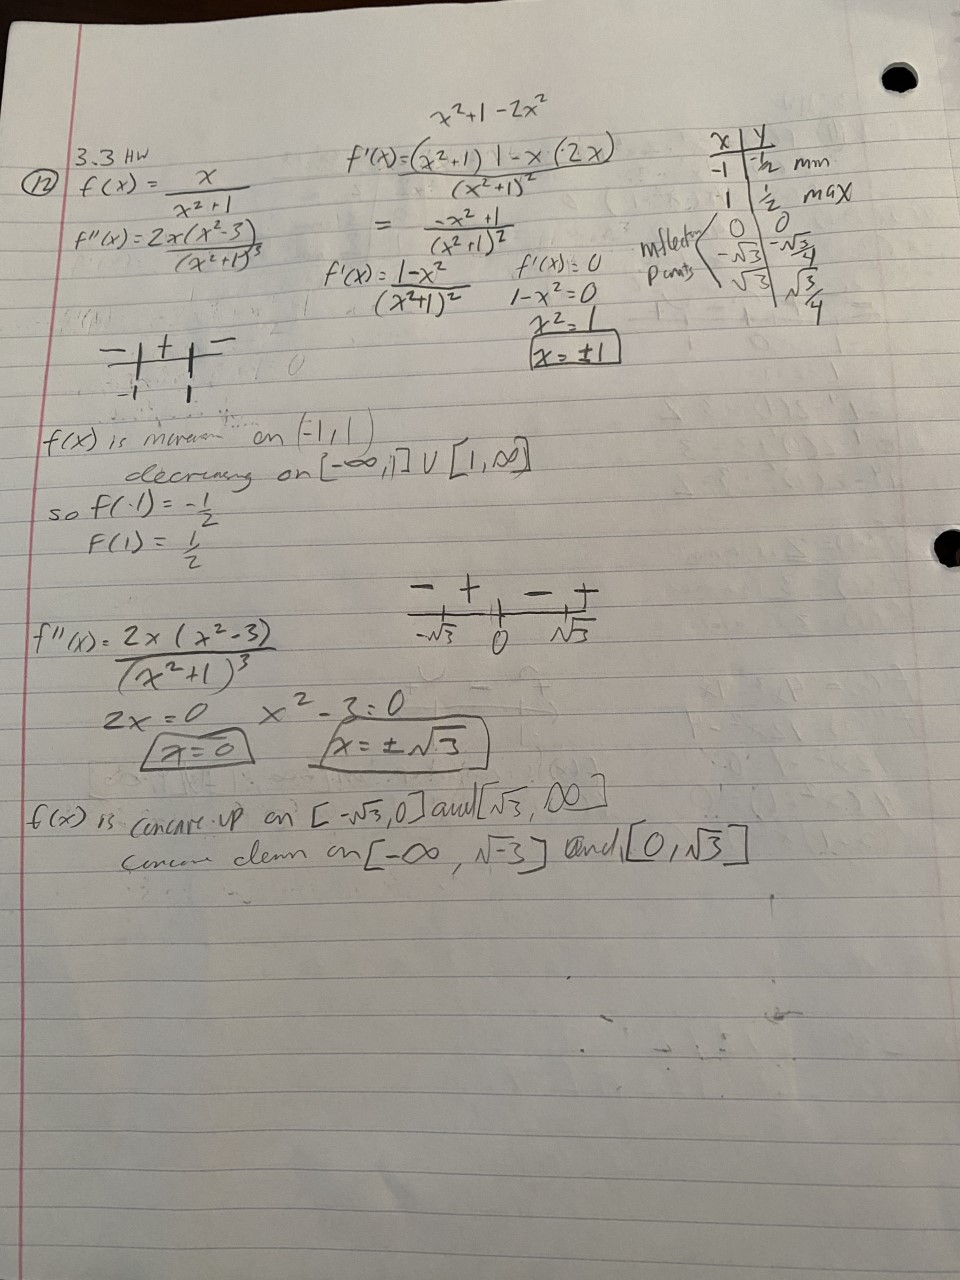 x²+1-2x²
3.3 HW
(12) f(x) = x/(x²+1)
f'(x)=((x²+1)1-x(2x))/(x²+1)²
= (-x²+1)/(x²+1)²
f''(x)=2x(x²-3)/(x²+1)³
f'(x)=(1-x²)/(x²+1)²
f'(x)=0
1-x²=0
x²=1
x=±1
x | y
-1 | -1/2 min
1 | 1/2 max
inflection points
0 | 0
-√3 | -√3/4
√3 | √3/4
- + -
-1 1
f(x) is increasin on (-1,1)
decreasing on [-∞,1] ∪ [1,∞]
so f(-1)=-1/2
F(1)=1/2
- + - +
-√3 0 √3
f''(x)=2x(x²-3)/(x²+1)³
2x=0 x²-3=0
x=0 x=±√3
f(x) is concave up on [-√3,0] and [√3,∞]
concave down on [-∞,√-3] and [0,√3]